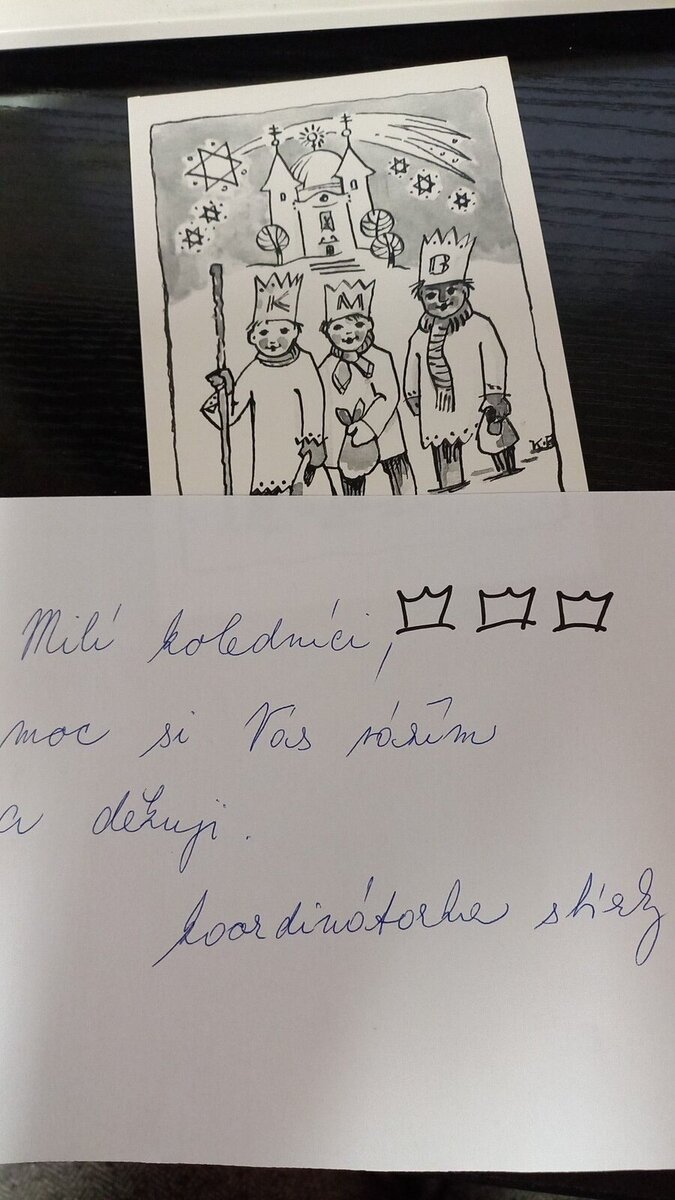 K M B
K.B
Milí koledníci,
moc si Vás vážím
a děkuji.
koordinátorka sbírky